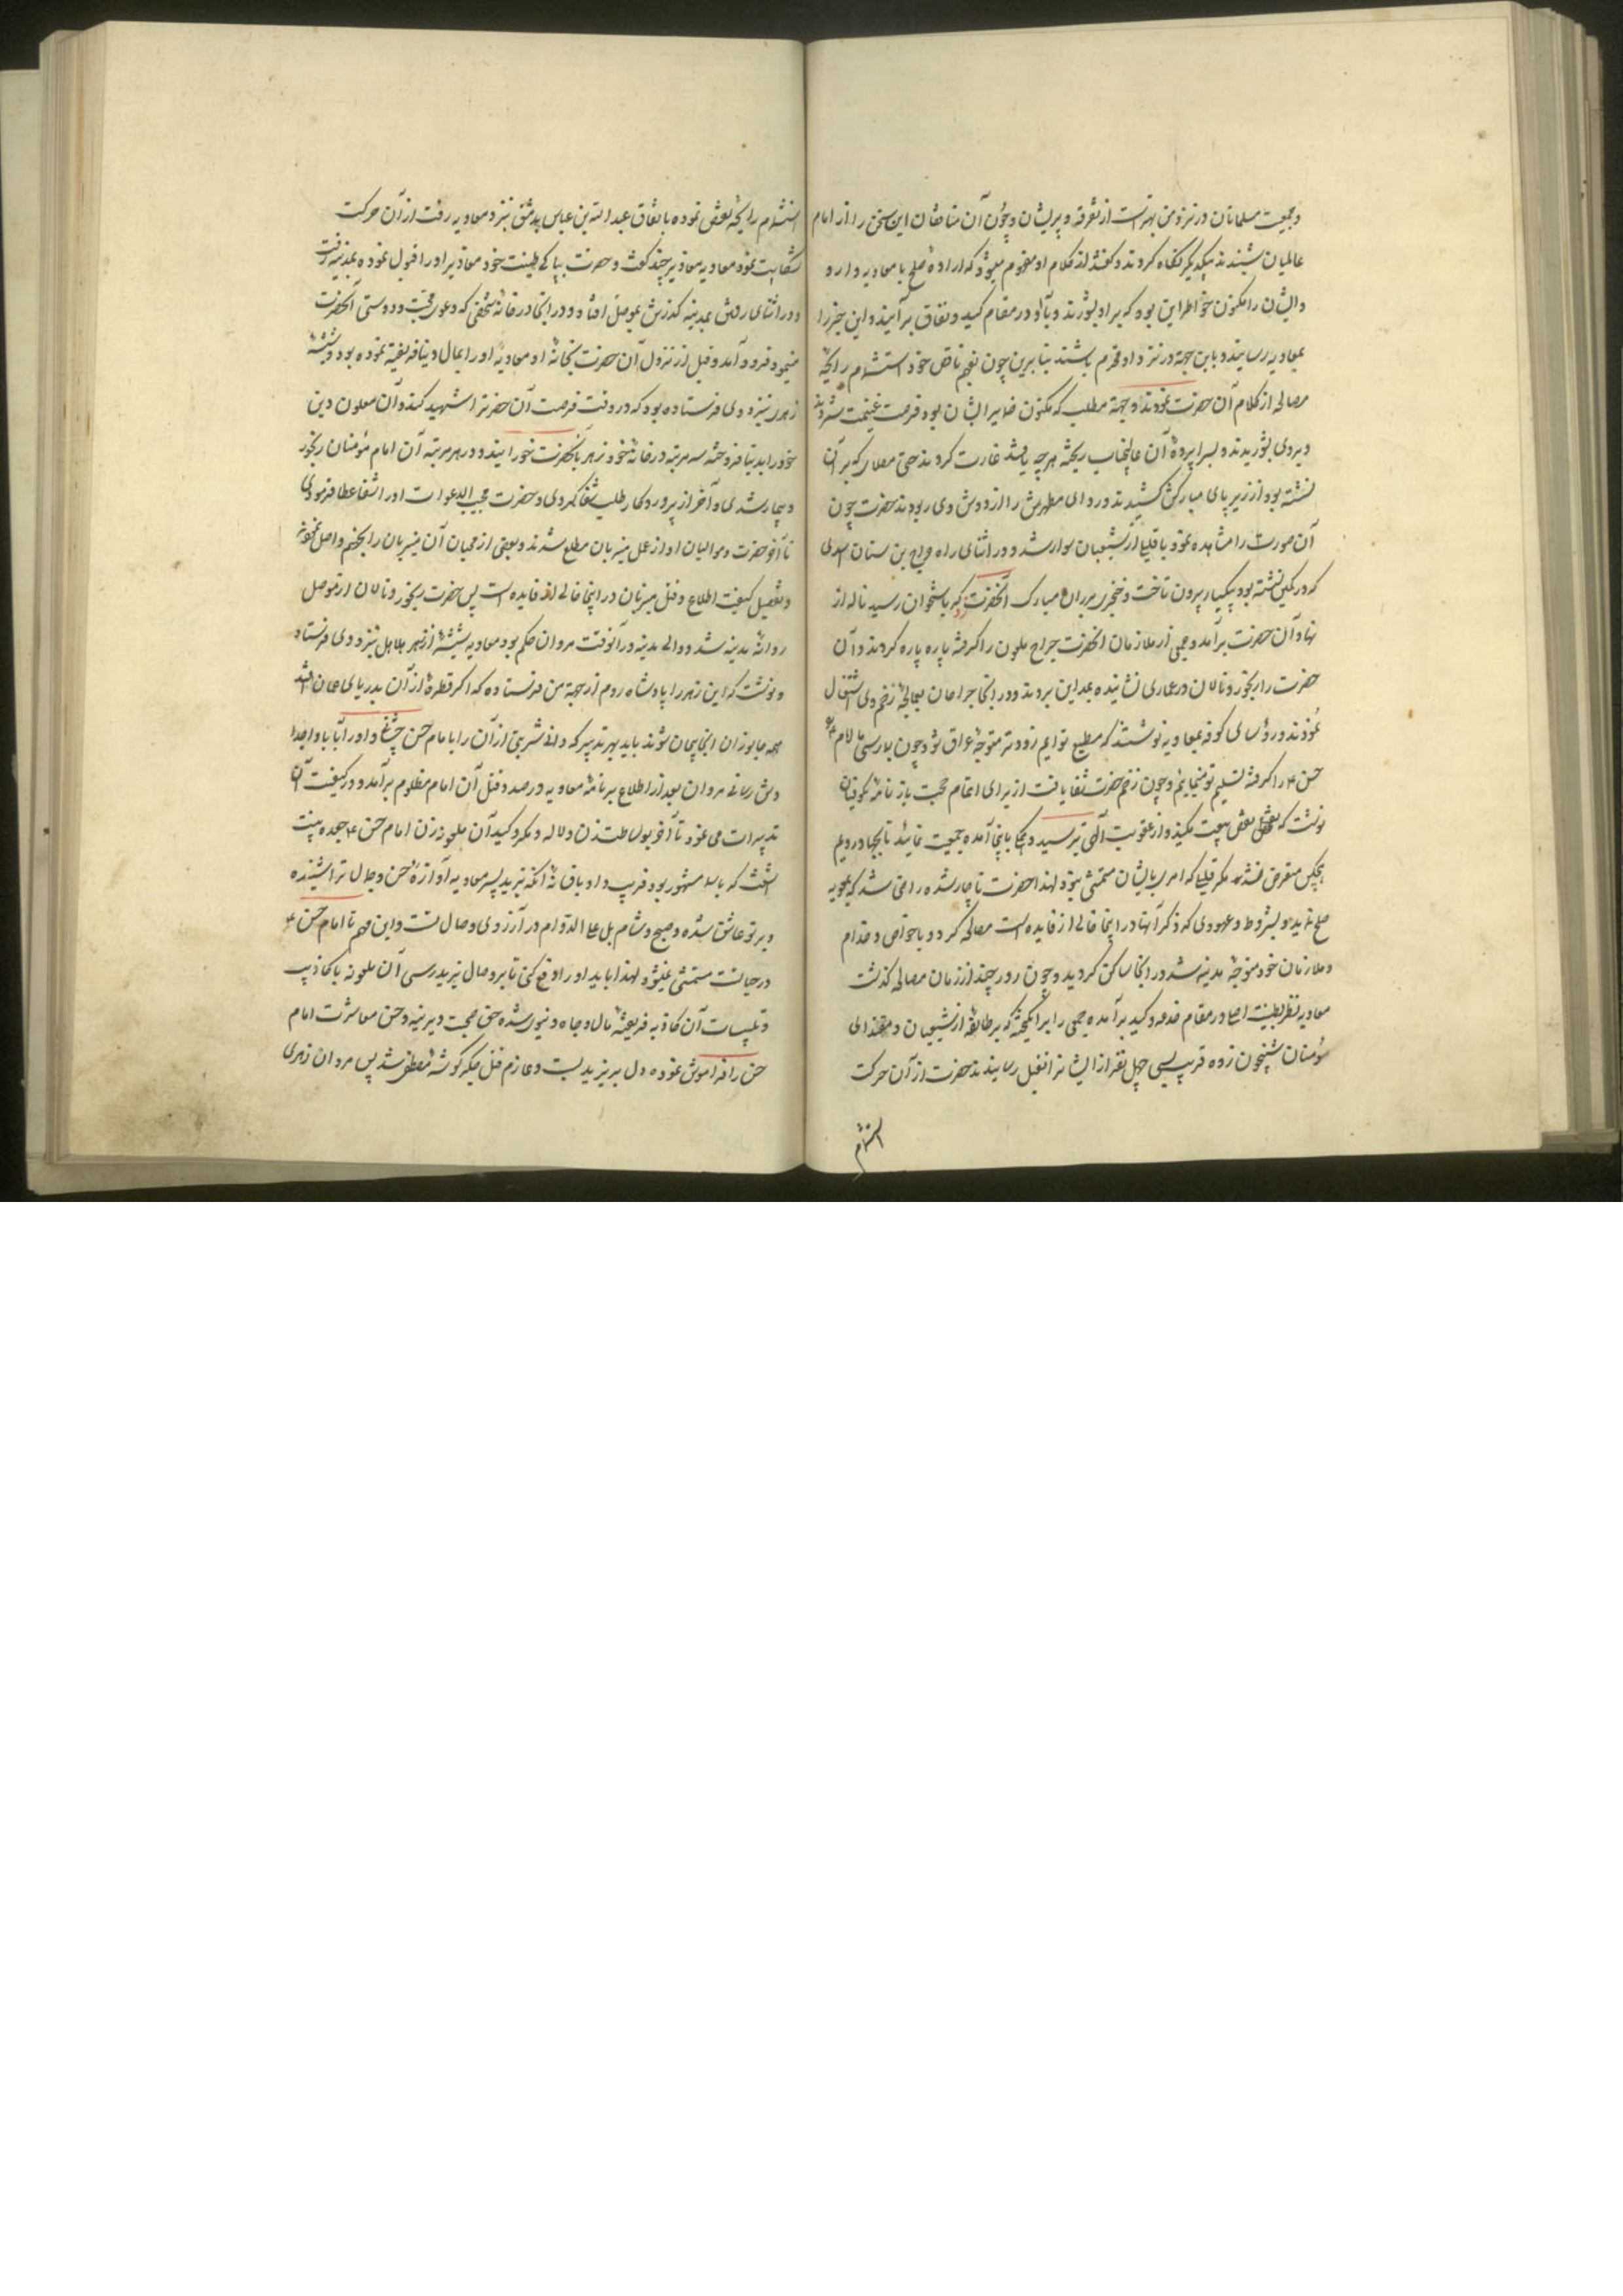 و جمعیت مسلمانان در نزد من بهتر است از تفرقه و پریشان و چون آن منافقان این سخن را از امام
عالمیان شنیدند بیکدیگر نگاه کردند و گفتند از کلام او مفهوم میشود که اراده صلح با معاویه دارد
و ایشان را مکنون خواطر این بود که بر او بشورند و با او در مقام کید و نفاق برآیند و این خبر را
بمعاویه رسانیده باین جهة در نزد او محرم باشند بنا برین چون بفهم ناقص خود استشمام رایحه
مصالحه از کلام آن حضرت نمودند و بجهة مطلب که مکنون ضمایر ایشان بود فرصت غنیمت شمردند
و بر وی بشوریدند و بسراپرده آن عالیجناب ریخته هرچه یافتند غارت کردند حتی مصلا که بر آن
نشسته بود از زیر پای مبارکش کشیدند و ردای مطهرش را از دوش وی ربودند حضرت چون
آن صورت را مشاهده نمود با قلیلی از شیعیان سوار شد و در اثنای راه جراح بن سنان اسدی
که در کمین نشسته بود بیکبار بیرون تاخت و خنجری بر ران مبارک آنحضرت زد که باستخوان رسید ناله از
نهاد آن حضرت برآمد و جمعی از ملازمان آنحضرت جراح ملعون را گرفته پاره پاره کردند و آن
حضرت را رنجور و نالان در عماری نشانیده بمداین بردند و در آنجا جراحان بمعالجهٔ زخم وی اشتغال
نمودند و رؤسای کوفه بمعاویه نوشتند که مطیع توایم زودتر متوجهٔ عراق شو و چون بما رسی ما امام
حسن ع را گرفته تسلیم تو نماییم و چون زخم حضرت شفا یافت از برای اتمام حجت باز نامه بکوفیان
نوشت که نقض بیعت مکنید و از عقوبت الهی بترسید و باینجا آمده جمعیت نمایند تا بجهاد رویم
هیچکس متعرض نشد مگر قلیلی که امر بایشان متمشی نبود لهذا حضرت ناچار شده راضی شد که بمعویه
صلح نماید و بشروط و عهودی که ذکر آنها در اینجا خالی از فایده است مصالحه کرد و با خواص و خدام
و ملازمان خود متوجهٔ مدینه شد در آنجا ساکن گردید و چون روز چند از زمان مصالحه گذشت
معاویه نظر بطینت اصلی در مقام خدعه و کید برآمده جمعی را برانگیخته که بر طایفهٔ از شیعیان و مقتدای
مؤمنان شبیخون زده قریب بسی چهل نفر از ایشان را بقتل رسانیدند حضرت از آن حرکت
استشمام
استشمام رایحهٔ نقض نموده باتفاق عبدالله بن عباس بدمشق نزد معاویه رفت از آن حرکت
شکایت نمود معاویه معاذیر چند گفت و حضرت بپاکی طینت خود معاذیر او را قبول نموده بمدینه رفت
و در اثنای رفتن بمدینه گذرش بموصل افتاد و در آنجا در خانهٔ شخصی که دعوی محبت و دوستی آنحضرت
مینمود فرود آمد و قبل از نزول آن حضرت بخانهٔ او معاویه او را بمال دنیا فریفته نموده بود و شیشهٔ
زهری نیز بوی فرستاده بود که در وقت فرصت آن حضرت را شهید کند و آن ملعون دین
خود را بدنیا فروخته سه مرتبه در خانهٔ خود زهر بآنحضرت خورانید و در هر مرتبه آن امام مؤمنان رنجور
و بیمار شدی و آخر از پروردگار طلب شفا کردی و حضرت مجیب الدعوات او را شفا عطا فرمودی
تا آخر حضرت و موالیان او از عمل میزبان مطلع شدند و بعضی از محبان آن میزبان را بجهنم واصل نمودند
و تفصیل کیفیت اطلاع و قتل میزبان در اینجا خالی از فایده است پس حضرت رنجور و نالان از موصل
روانهٔ مدینه شد و والی مدینه در آنوقت مروان حکم بود معاویه شیشهٔ از زهر هلاهل نزد وی فرستاد
و نوشت که این زهر را پادشاه روم از جهة من فرستاده که اگر قطرهٔ از آن بدریای عمان افتد
همه جانوران آنجا بیجان شوند باید بهر تدبیر که دانی شربتی از آن را بامام حسن چشانی و او را بآبا و اجداد
خود رسانی مروان بعد از اطلاع بر نامهٔ معاویه در صدد قتل آن امام مظلوم برآمد و در کیفیت آن
تدبیرات می نمود تا آخر بوساطت زن دلاله و مکر و کید آن ملعونه زن امام حسن ع جعده بنت
اشعث که باسما مشهور بود فریب داد باین که یزید پسر معاویه آوازهٔ حسن و جمال ترا شنیده
و بر تو عاشق شده و صبح و شام بل علی الدوام در آرزوی وصال تست و این مهم تا امام حسن ع
در حیاتست متمشی نمیشود لهذا باید او را دفع کنی تا بر وصال یزید رسی آن ملعونه باکاذیب
و تلبیسات آن کاذبه فریفتهٔ مال و جاه دنیوی شده حق صحبت دیرینه و حسن معاشرت امام
حسن را فراموش نموده دل بر یزید بست و عازم قتل جگر گوشهٔ مصطفی شد پس مروان زهری